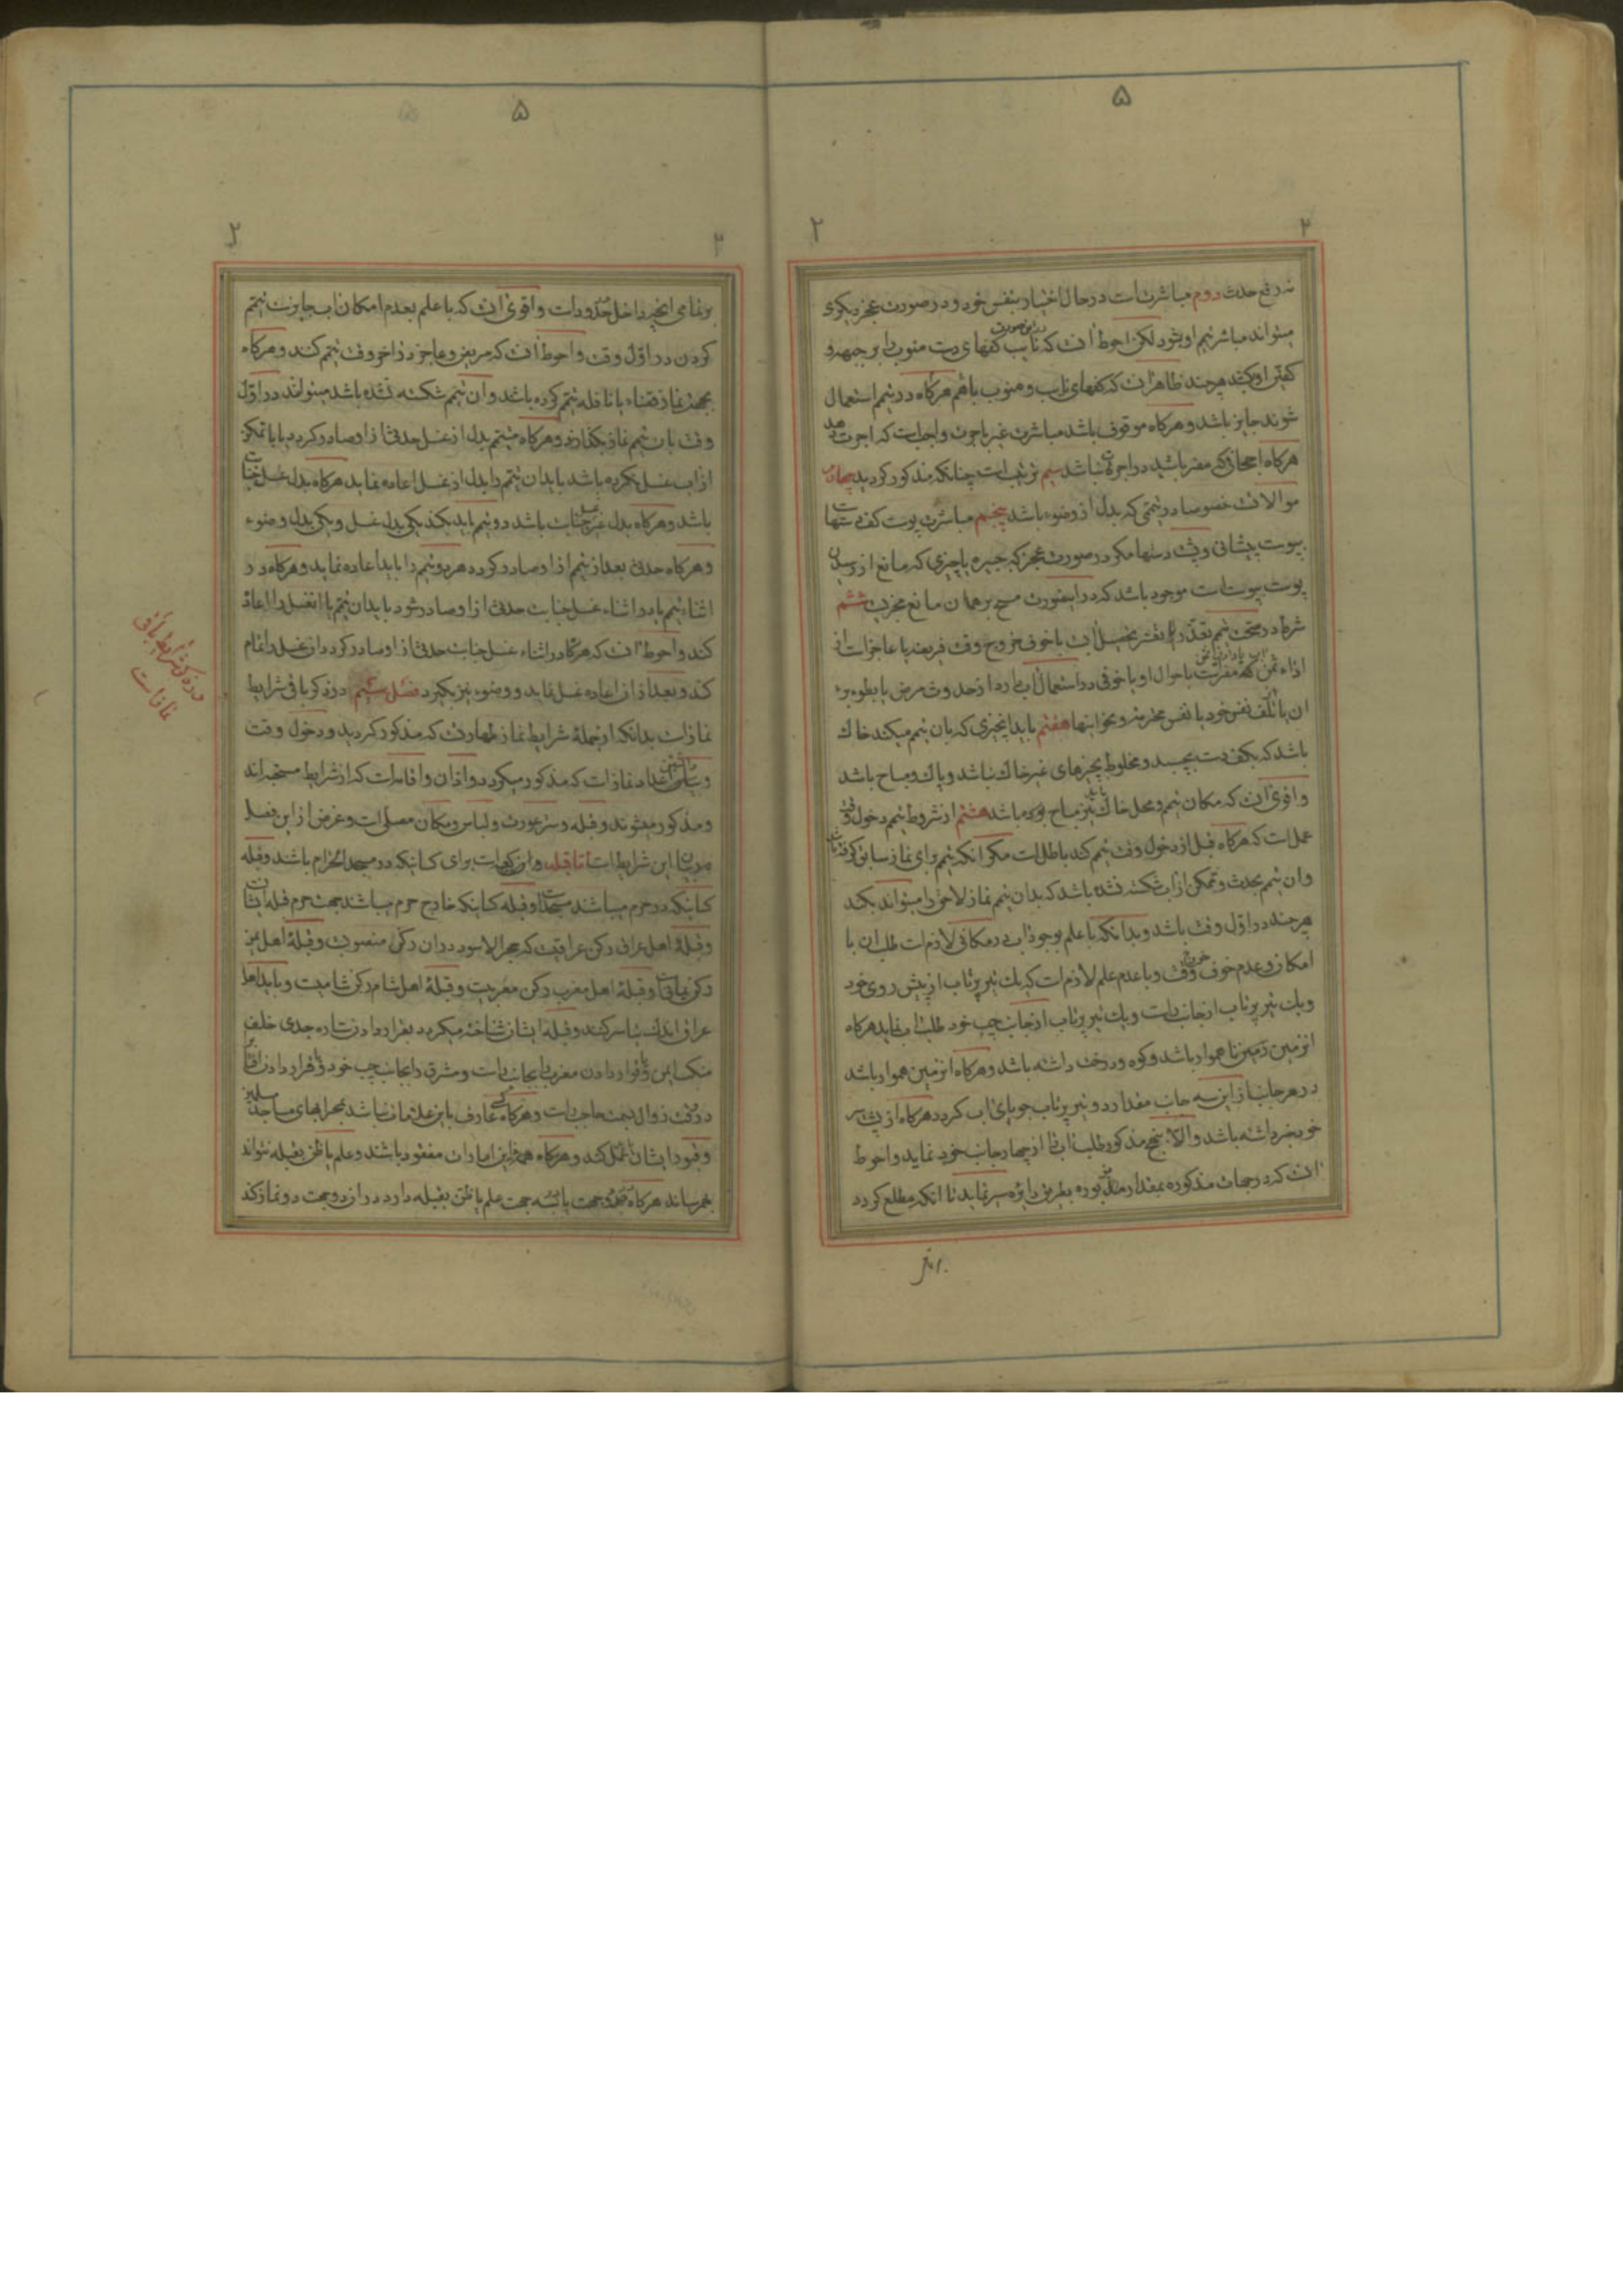 ۵
۲ ۲
نه رفع حدث دوم مباشرتست در حال اختیار بنفس خود و در صورت عجز دیکری
میتواند مباشر تیمم او شود لکن احوط آنست که نایب در این صورت کفهای دست منوب را بر جبهه و
کفین او کشد هر چند ظاهر آنست که کفهای نایب و منوب با هم هرکاه در تیمم استعمال
شوند جایز باشد و هرکاه موقوف باشد مباشرت غیر باجرت واجبست که اجرت دهد
هرکاه اجحافی که مضر باشد در اجرت نباشد سیم ترتیب است چنانکه مذکور کردید چهارم
موالات خصوصا در تیممی که بدل از وضوء باشد پنجم مباشرت پوست کف دستها
بپوست پیشانی و پشت دستها مکر در صورت عجز که جبیره یا چیزی که مانع از رسیدن
پوست بپوست است موجود باشد که در اینصورت مسح بر همان مانع مجزیست ششم
شرط در صحت تیمم تعذر تحصیل آب یا خوف خروج وقت فریضه یا عاجز است از
اداء ثمن که مضر نیست باحوال او یا خوفی در استعمال آب دارد از حدوث مرض یا بطوء برء
آن یا تلف نفس خود یا نفس محترمه و نحو اینها هفتم باید آنچیزی که بآن تیمم میکند خاک
باشد که بکف دست بچسبد و مخلوط بچیزهای غیر خاک نباشد و پاک و مباح باشد
و اقوی آنست که مکان تیمم و محل خاک نیز مباح بوده باشد هشتم از شروط تیمم دخول وقت
عمل است که هرکاه قبل از دخول وقت تیمم کند باطل است مکر آنکه تیمم برای نماز سابق کرفته باشد
و آن تیمم بحدث و تمکن از آب شکسته نشده باشد که بدان تیمم نماز لاحق را میتواند بکند
هر چند در اول وقت باشد و بدانکه با علم بوجود آب در مکانی لازم است طلب آن با
امکان و عدم خوف خروج وقت و با عدم علم لازم است که یک تیر پرتاب از پیش روی خود
و یک تیر پرتاب از جانب راست و یک تیر پرتاب از جانب چپ خود طلب آب نماید هرکاه
آنزمین زمین ناهموار باشد و کوه و درخت داشته باشد و هرکاه آنزمین هموار باشد
در هر جانب از این سه جانب مقدار دو تیر پرتاب جویای آب کردد هرکاه از پشت سر
خود خبر داشته باشد و الا بنهج مذکور طلب آب را از چهار جانب خود نماید و احوط
آنست که در جهات مذکوره بمقدار مذکوره بطریق دایره سیر نماید تا آنکه مطلع کردد
۵
۲ ۲
بر تمامی آنچیز داخل حدود است و اقوی آنست که با علم بعدم امکان آب جایز است تیمم
کردن در اول وقت و احوط آنست که مریض و عاجز در آخر وقت تیمم کند و هرکاه
بجهت نماز قضاء یا نافله تیمم کرده باشد و آن تیمم شکسته نشده باشد میتواند در اول
وقت بآن تیمم نماز بکذارد و هرکاه متیمم بدل از غسل حدثی از او صادر کردد یا با تمکن
از آب غسل نکرده باشد باید آن تیمم را بدل از غسل اعاده نماید هرکاه بدل غسل جنابت
باشد و هرکاه بدل غیر غسل جنابت باشد دو تیمم باید بکند یکی بدل غسل و یکی بدل وضوء
و هرکاه حدثی بعد از تیمم از او صادر کردد هر دو تیمم را باید اعاده نماید و هرکاه در
اثناء تیمم یا در اثناء غسل جنابت حدثی از او صادر شود باید آن تیمم یا آنغسل را اعاده
کند و احوط آنست که هرکاه در اثناء غسل جنابت حدثی از او صادر کردد آن غسل را تمام
کند و بعد از آن اعاده غسل نماید و وضوء نیز بکیرد فصل سیم در ذکر باقی شرایط
نماز است بدانکه از جمله شرایط نماز طهارتست که مذکور کردید و دخول وقت
نماز است که مذکور میکردد و اذان و اقامه است که از شرایط مستحبه اند
و مذکور میشوند و قبله و ستر عورت و لباس و مکان مصلی است و غرض از این فصل
بیان این شرایط است اما قبله و این کعبه است برای کسانیکه در مسجد الحرام باشند و قبله
کسانیکه در حرم میباشند مسجد است و قبله کسانیکه خارج حرم میباشند جهت حرم قبله ایشانست
و قبلهٔ اهل عراق رکن عراقیست که حجر الاسود در آن رکن منصوبست و قبلهٔ اهل یمن
رکن یمانی است و قبلهٔ اهل مغرب رکن مغربیست و قبلهٔ اهل شام رکن شامیست و باید اهل
عراق اندک تیاسر کنند و قبله ایشان شناخته میکردد بقرار دادن ستاره جدی خلف
منکب ایمن و قرار دادن مغرب را بجانب راست و مشرق را بجانب چپ خود و قرار دادن آفتاب
در وقت زوال بسمت حاجب راست و هرکاه کسی عارف باین علامات نباشد بمحرابهای مساجد مسلمین
و قبور ایشان عمل کند و هرکاه همهٔ این امارات مفقود باشند و علم یا ظن بقبله نتواند
بهم رساند هرکاه در دو جهت یا سه جهت علم یا ظن بقبله دارد در آن دو جهت دو نماز کند
در ذکر شرایط باقی
نماز است